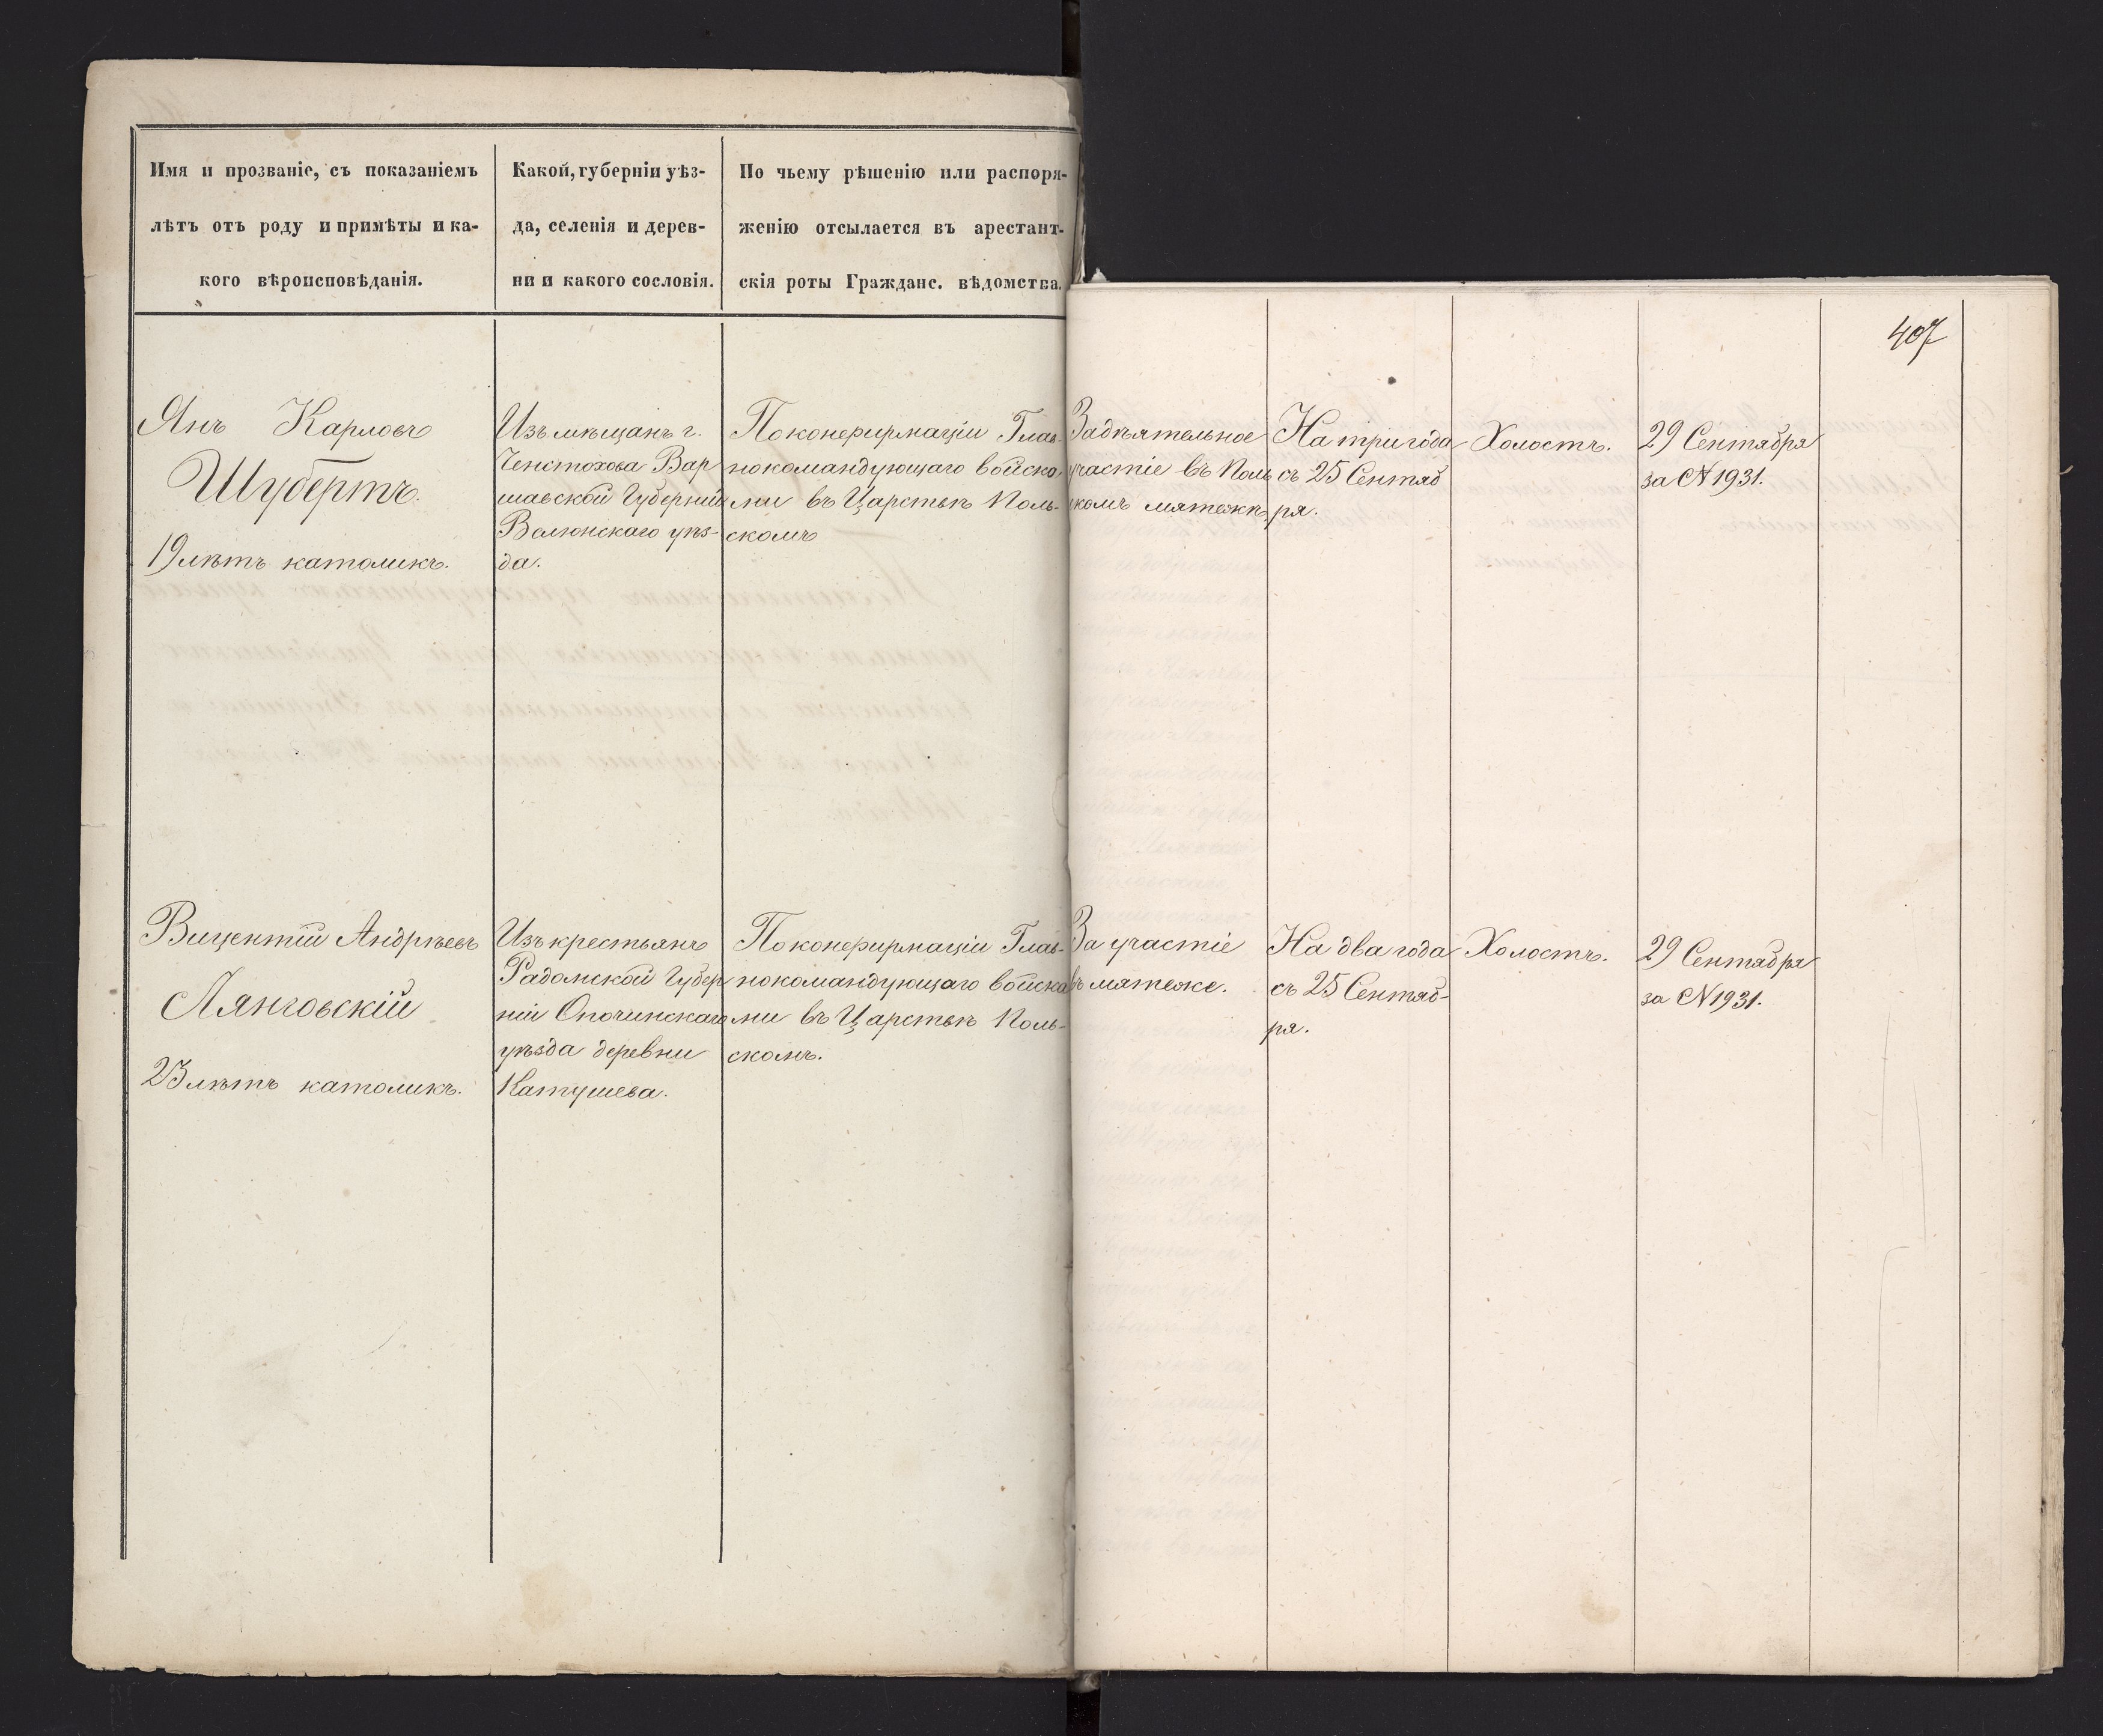 Имя и прозваніе, съ показаніемъ
лѣтъ отъ роду и примѣты и ка-
кого вѣроисповѣданія.
Какой, губерніи уѣз-
да, селенія и дерев-
ни и какого сословія.
По чьему рѣшенію или распоря-
женію отсылается въ арестант-
скія роты Гражданс. вѣдомства.
407
Янъ Карловъ
Шубертъ.
19 лѣтъ католикъ.
Изъ мѣщанъ г.
Ченстохова Вар
шавской Губерніи
Велюнскаго уѣз-
да.
По конфирмаціи Глав-
нокомандующаго войска
ми въ Царствѣ Поль-
скомъ
За дѣятельное
участіе въ Поль
скомъ мятежѣ
На три года
съ 25 Сентяб
ря.
Холостъ.
29 Сентября
за № 1931.
Вицентій Андрѣевъ
Лянговскій
23 лѣтъ католикъ.
Изъ крестьянъ
Радомской Губер
ніи Опочинскаго
уѣзда деревни
Катушева.
По конфирмаціи Глав-
нокомандующаго войска
ми въ Царствѣ Поль-
скомъ.
За участіе
въ мятеже.
На два года
съ 25 Сентяб-
ря.
Холостъ.
29 Сентября
за № 1931.